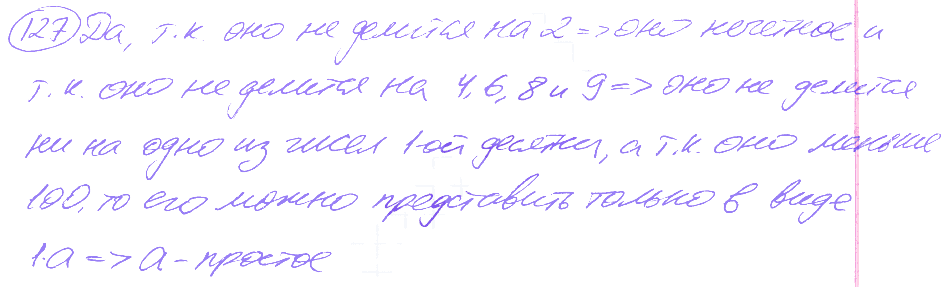 127 Да, т.к. оно не делится на 2 => оно нечетное и
т.к. оно не делится на 4, 6, 8 и 9 => оно не делится
ни на одно из чисел 1-ой десятки, а т.к. оно меньше
100, то его можно представить только в виде
1·a => a - простое